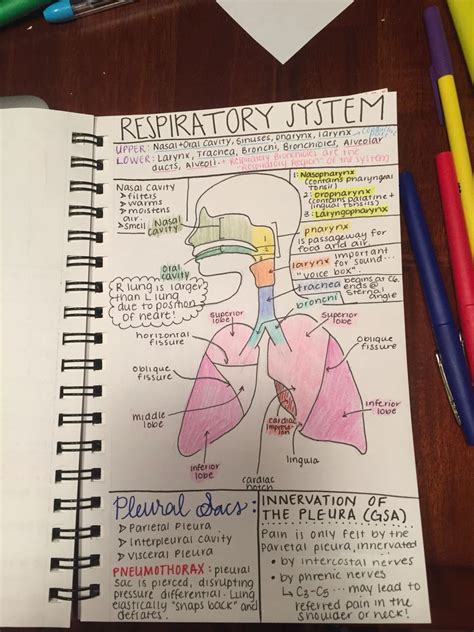 RESPIRATORY SYSTEM
UPPER: Nasal + Oral Cavity, Sinuses, pharynx, larynx
LOWER: Larynx, Trachea, Bronchi, Bronchioles, Alveolar
ducts, Alveoli * Respiratory Bronchioles are the
"Respiratory Region" of the system
Nasal Cavity
filters
warms
moistens
air.
smell
Nasal
cavity
Oral
cavity
1: Nasopharynx
(contains pharyngeal
tonsil)
2: Oropharynx
(contains palatine +
lingual tonsils)
3: Laryngopharynx
1
2
3
pharynx
is passageway for
food and air
larynx important
for sound...
"voice box"
trachea begins at C6.
ends @
sternal
angle
bronchi
R lung is larger
than L lung
due to position
of heart!
superior
lobe
superior
lobe
horizontal
fissure
oblique
fissure
oblique
fissure
middle
lobe
inferior
lobe
inferior
lobe
cardiac
impression
lingula
cardiac
notch
Pleural Sacs:
Parietal Pleura
Interpleural cavity
Visceral Pleura
PNEUMOTHORAX: pleural
sac is pierced, disrupting
pressure differential. Lung
elastically "snaps back" and
deflates.
INNERVATION OF
THE PLEURA (GSA)
Pain is only felt by the
Parietal pleura, innervated
• by intercostal nerves
• by phrenic nerves
C3-C5... may lead to
referred pain in the
shoulder or neck!